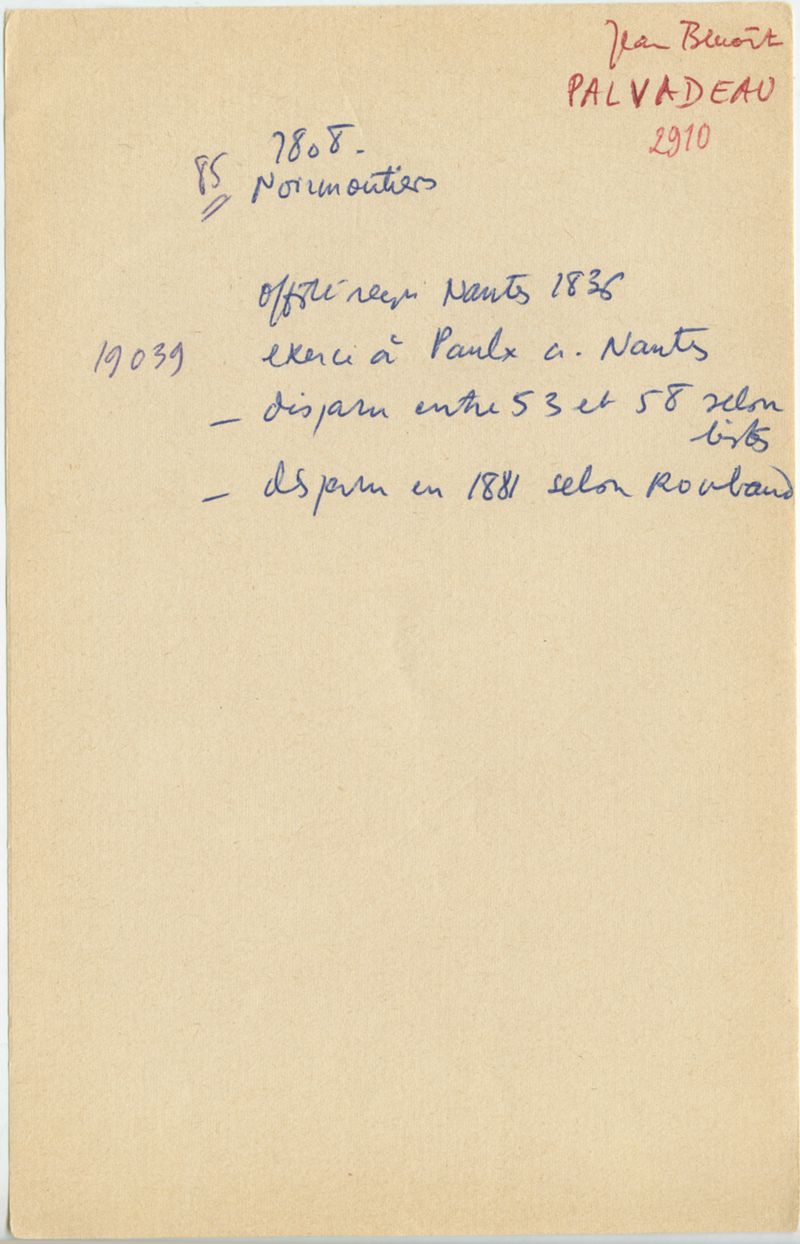 Jean Benoît
PALVADEAU
2910
1808.
85 Noirmoutiers
reçu Nantes 1836
19039 exerce à Paulx a. Nantes
— disparu entre 53 et 58 selon
listes
— disparu en 1881 selon Roubaud